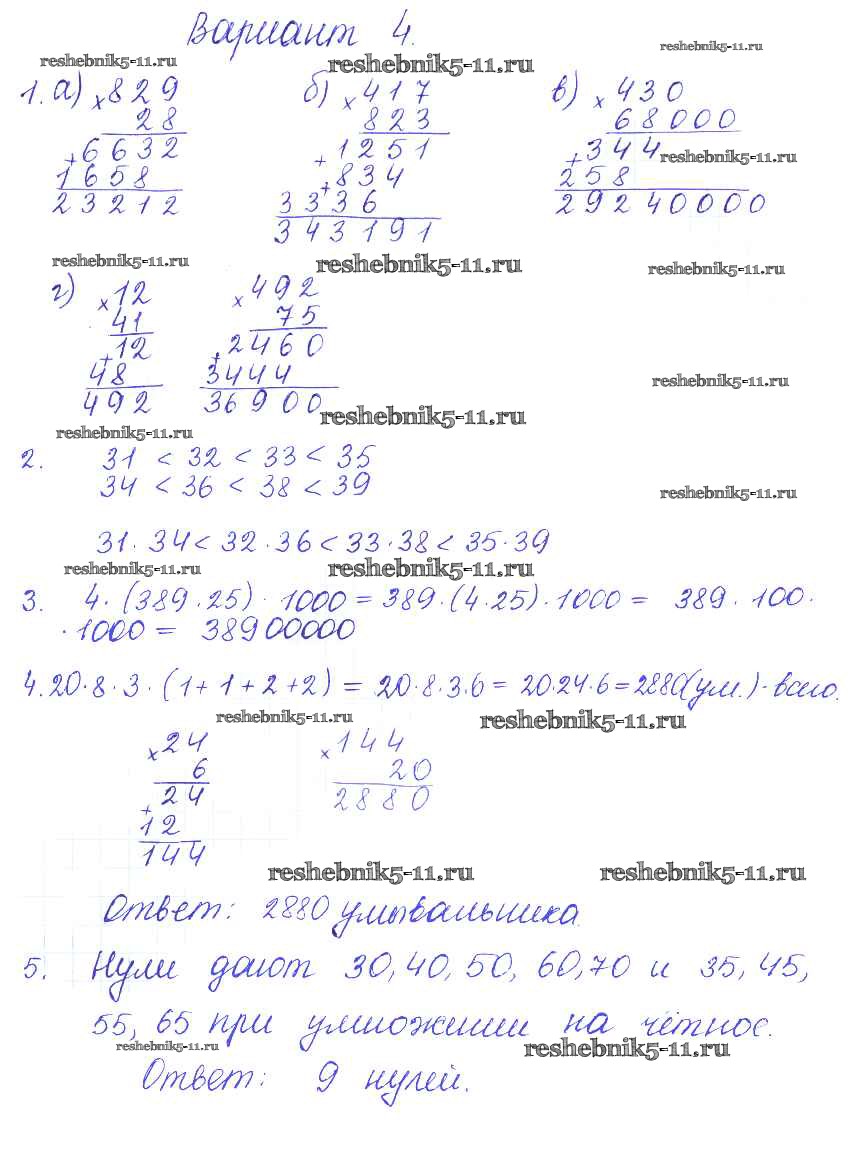 Вариант 4.
reshebnik5-11.ru reshebnik5-11.ru reshebnik5-11.ru
1. а) × 829 б) × 417 в) × 430
28 823 68000
+ 6632 + 1251 + 344 reshebnik5-11.ru
1658 + 834 258
23212 3336 29240000
343191
reshebnik5-11.ru reshebnik5-11.ru reshebnik5-11.ru
г) × 12 × 492
41 75
+ 12 + 2460
48 3444 reshebnik5-11.ru
492 36900 reshebnik5-11.ru
reshebnik5-11.ru
2. 31 < 32 < 33 < 35
34 < 36 < 38 < 39 reshebnik5-11.ru
31 · 34 < 32 · 36 < 33 · 38 < 35 · 39
reshebnik5-11.ru reshebnik5-11.ru
3. 4 · (389 · 25) · 1000 = 389 · (4 · 25) · 1000 = 389 · 100 ·
· 1000 = 38900000
4. 20 · 8 · 3 · (1 + 1 + 2 + 2) = 20 · 8 · 3 · 6 = 20 · 24 · 6 = 2880 (ум.) - всего.
reshebnik5-11.ru reshebnik5-11.ru
× 24 × 144
6 20
+ 24 2880
12
144
reshebnik5-11.ru reshebnik5-11.ru
Ответ: 2880 умывальника.
5. Нули дают 30, 40, 50, 60, 70 и 35, 45,
55, 65 при умножении на чётное.
reshebnik5-11.ru reshebnik5-11.ru
Ответ: 9 нулей.